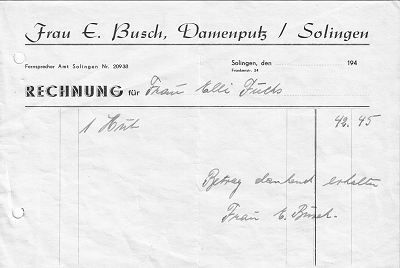 Frau E. Busch, Damenputz / Solingen
Fernsprecher Amt Solingen Nr. 20938
Solingen, den 194
Frankenstr. 24
RECHNUNG für Frau Elli Fuchs
1 Hut 42.45
Betrag dankend erhalten
Frau E. Busch.